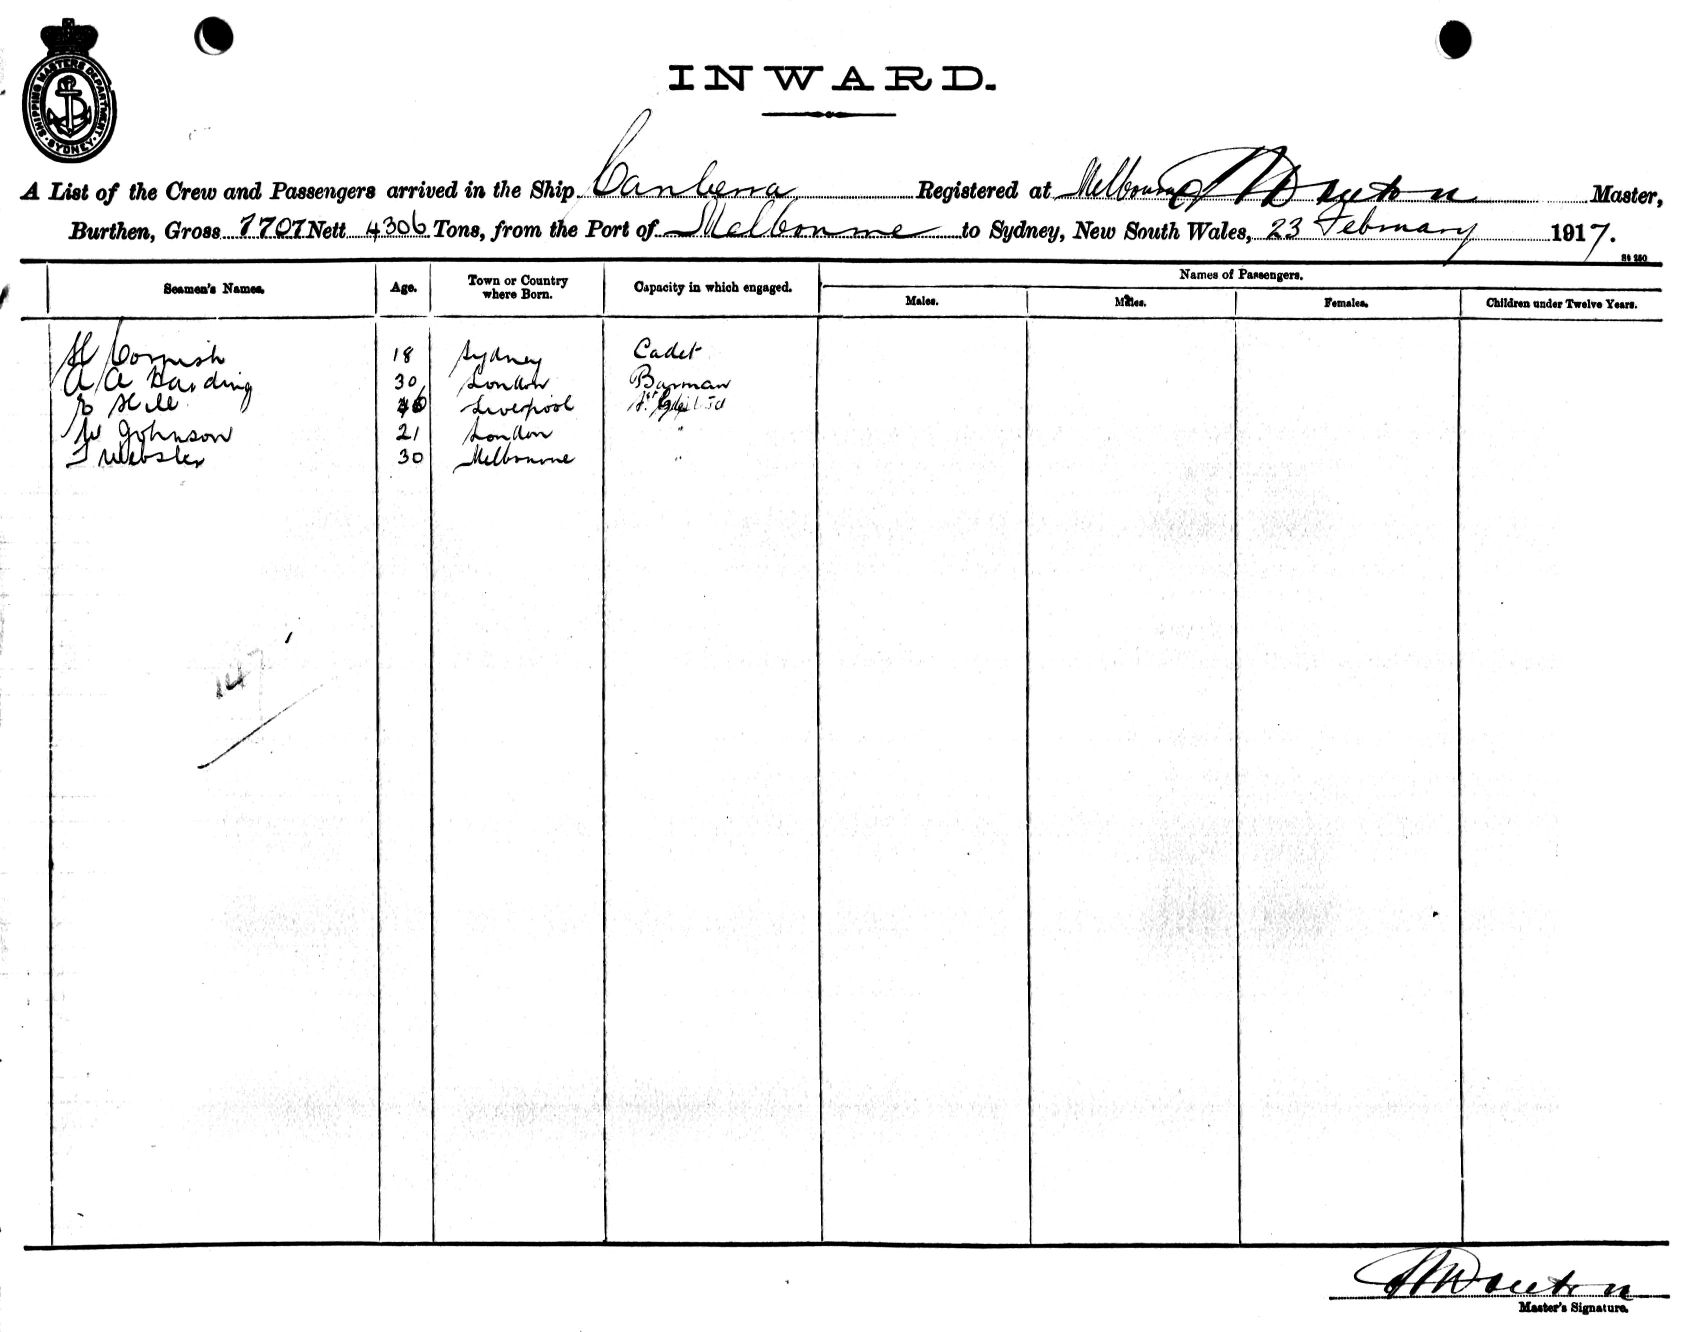 SHIPPING MASTERS DEPARTMENT
SYDNEY
INWARD.
A List of the Crew and Passengers arrived in the Ship Canberra Registered at Melbourne Master,
Burthen, Gross 7707 Nett 4306 Tons, from the Port of Melbourne to Sydney, New South Wales, 23 February 1917.
Names of Passengers.
Seamen's Names. Age. Town or Country where Born. Capacity in which engaged. Males. Males. Females. Children under Twelve Years.
H Cornish 18 Sydney Cadet
A A Harding 30 London Barman
E Hill Liverpool
W Johnson 21 London "
F Webster 30 Melbourne "
147
Master's Signature.